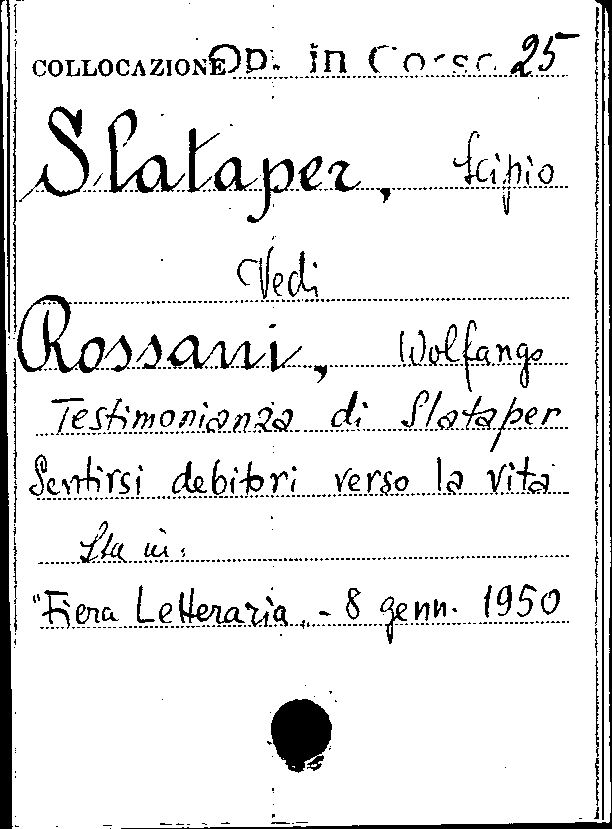 COLLOCAZIONE Op. in Corso 25
Slataper, Scipio
Vedi
Rossani, Wolfango
Testimonianza di Slataper
Sentirsi debitori verso la vita
Sta in:
"Fiera Letteraria„ - 8 genn. 1950